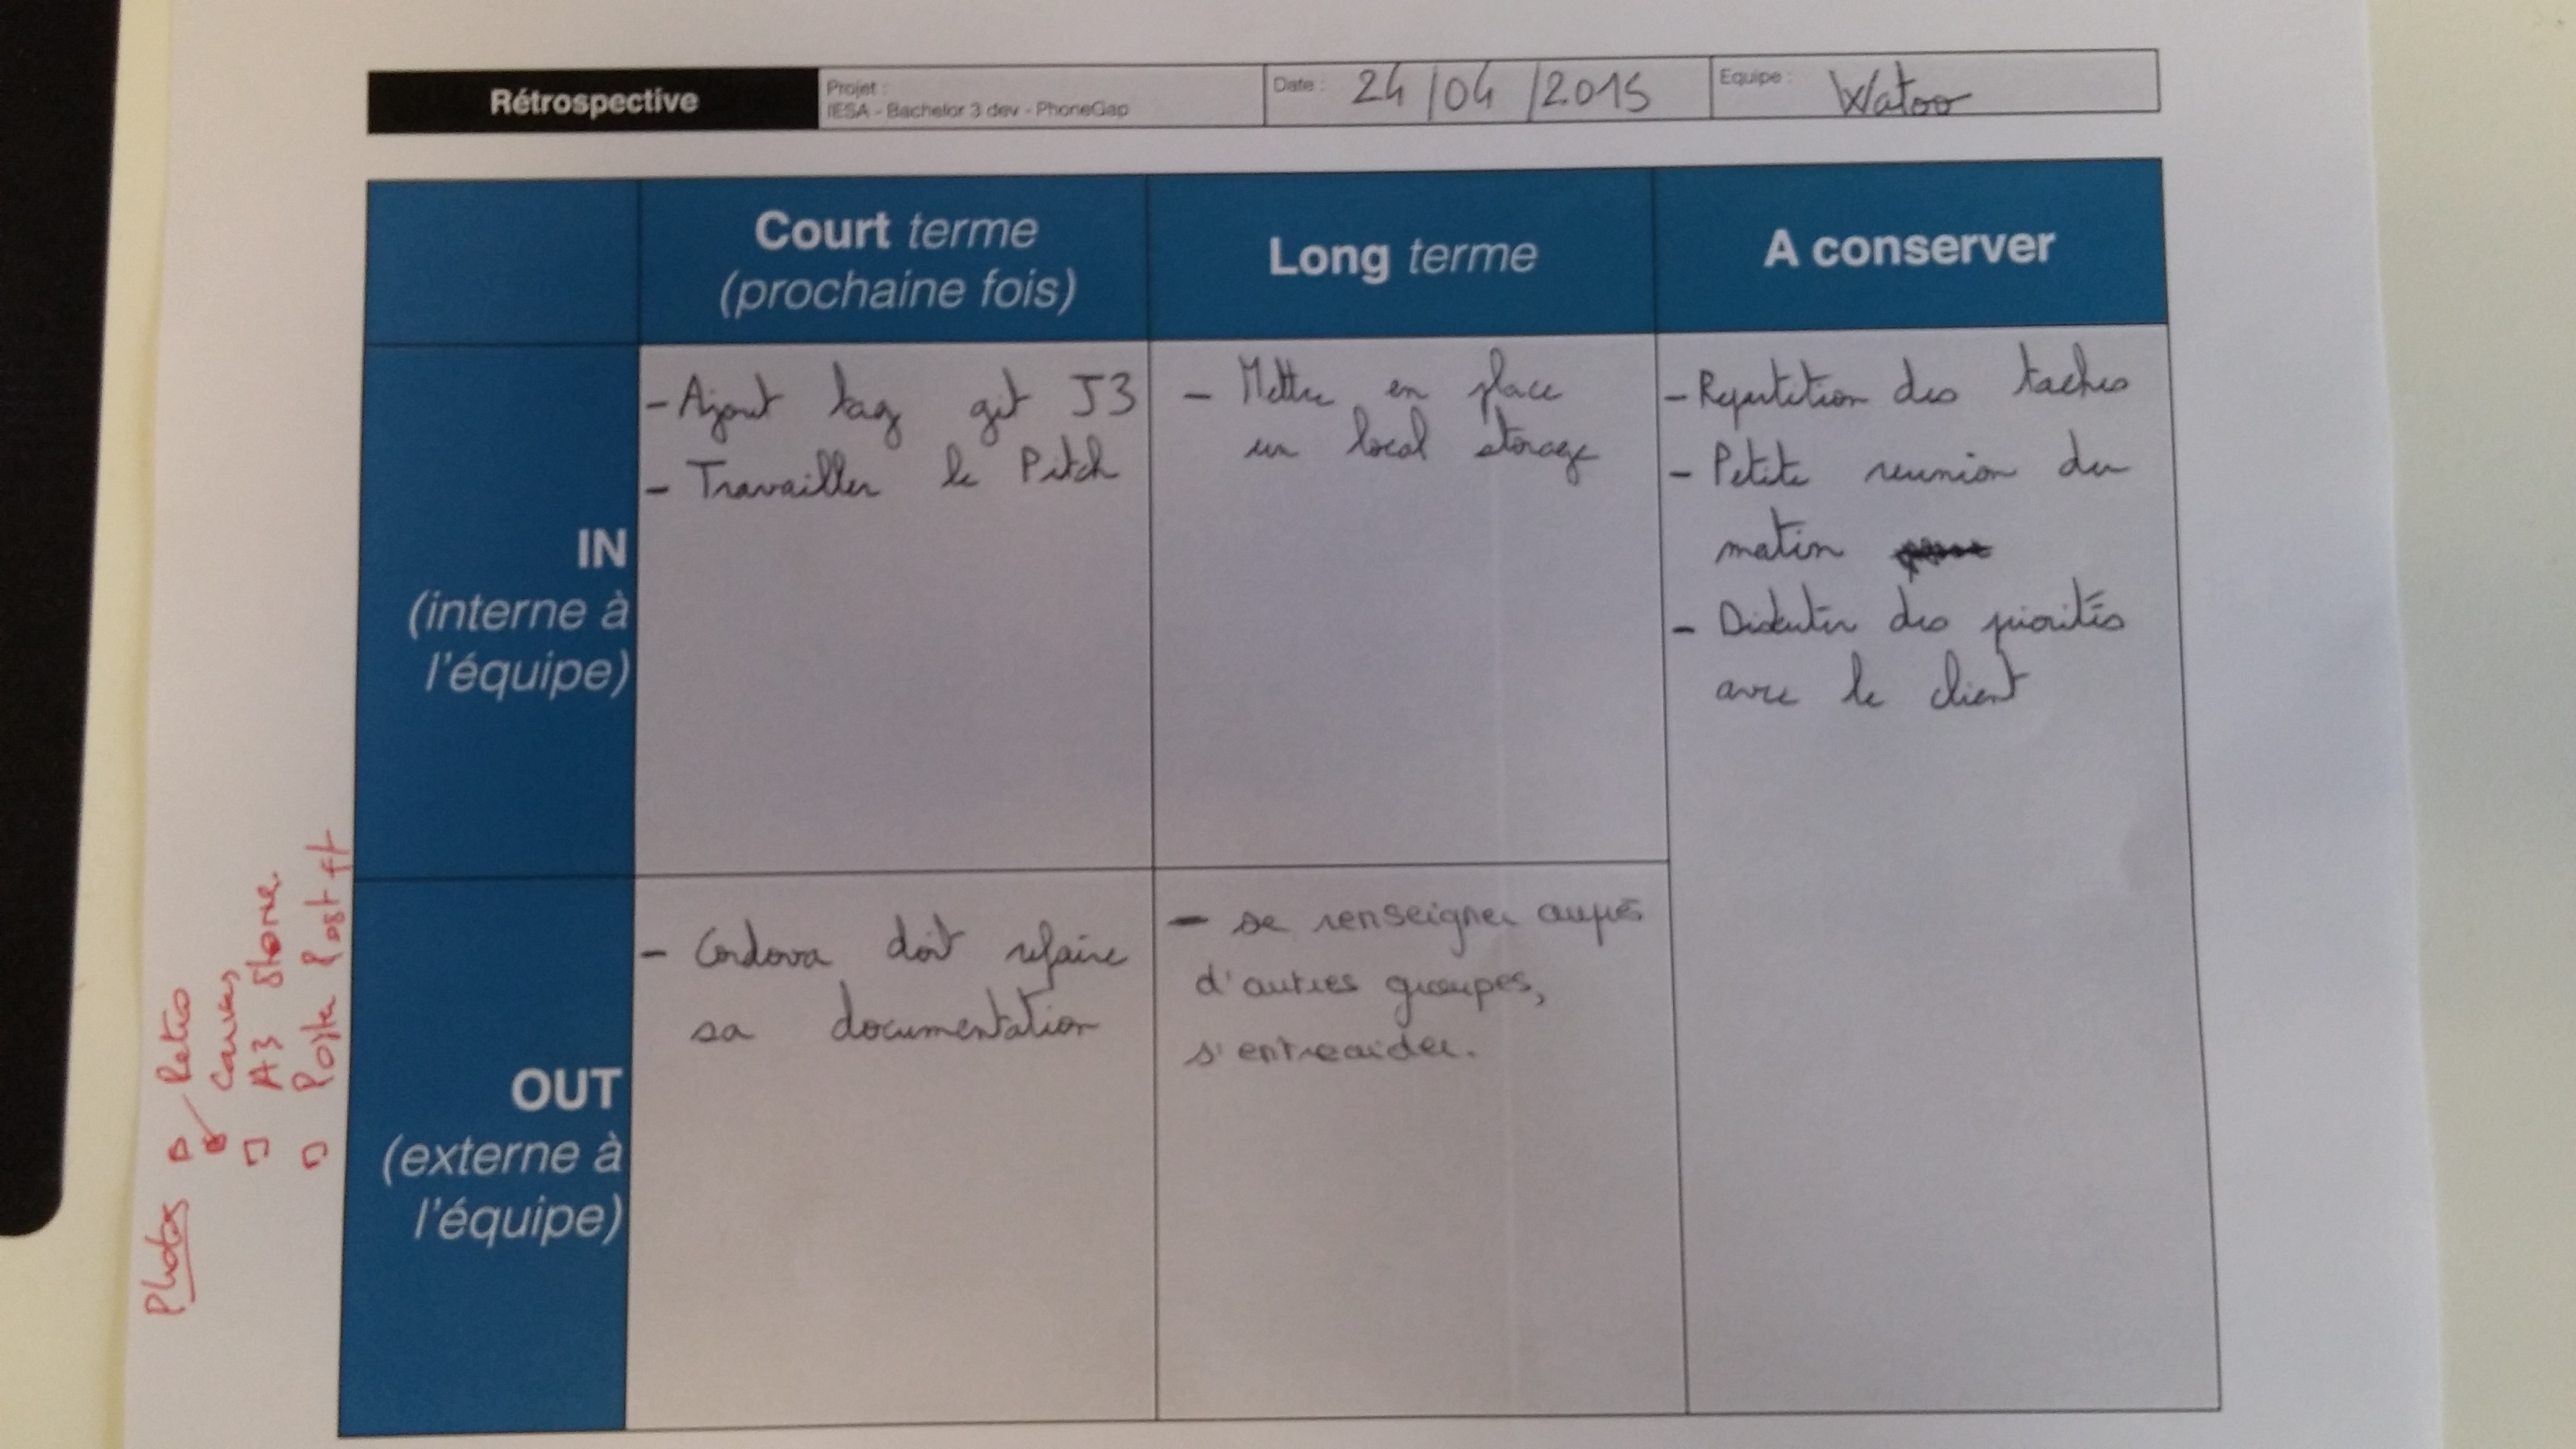 Rétrospective
Projet :
IESA - Bachelor 3 dev - PhoneGap
Date : 24/04/2015
Equipe : Watoo
Court terme
(prochaine fois)
Long terme
A conserver
IN
(interne à
l'équipe)
- Ajout tag git J3
- Travailler le Pitch
- Mettre en place
un local storage
- Repartition des taches
- Petite reunion du
matin
- Discuter des priorités
avec le client
OUT
(externe à
l'équipe)
- Cordova doit refaire
sa documentation
- se renseigner auprès
d'autres groupes,
s'entreaider.
Photos
Retro
Canvas
A3
Post it